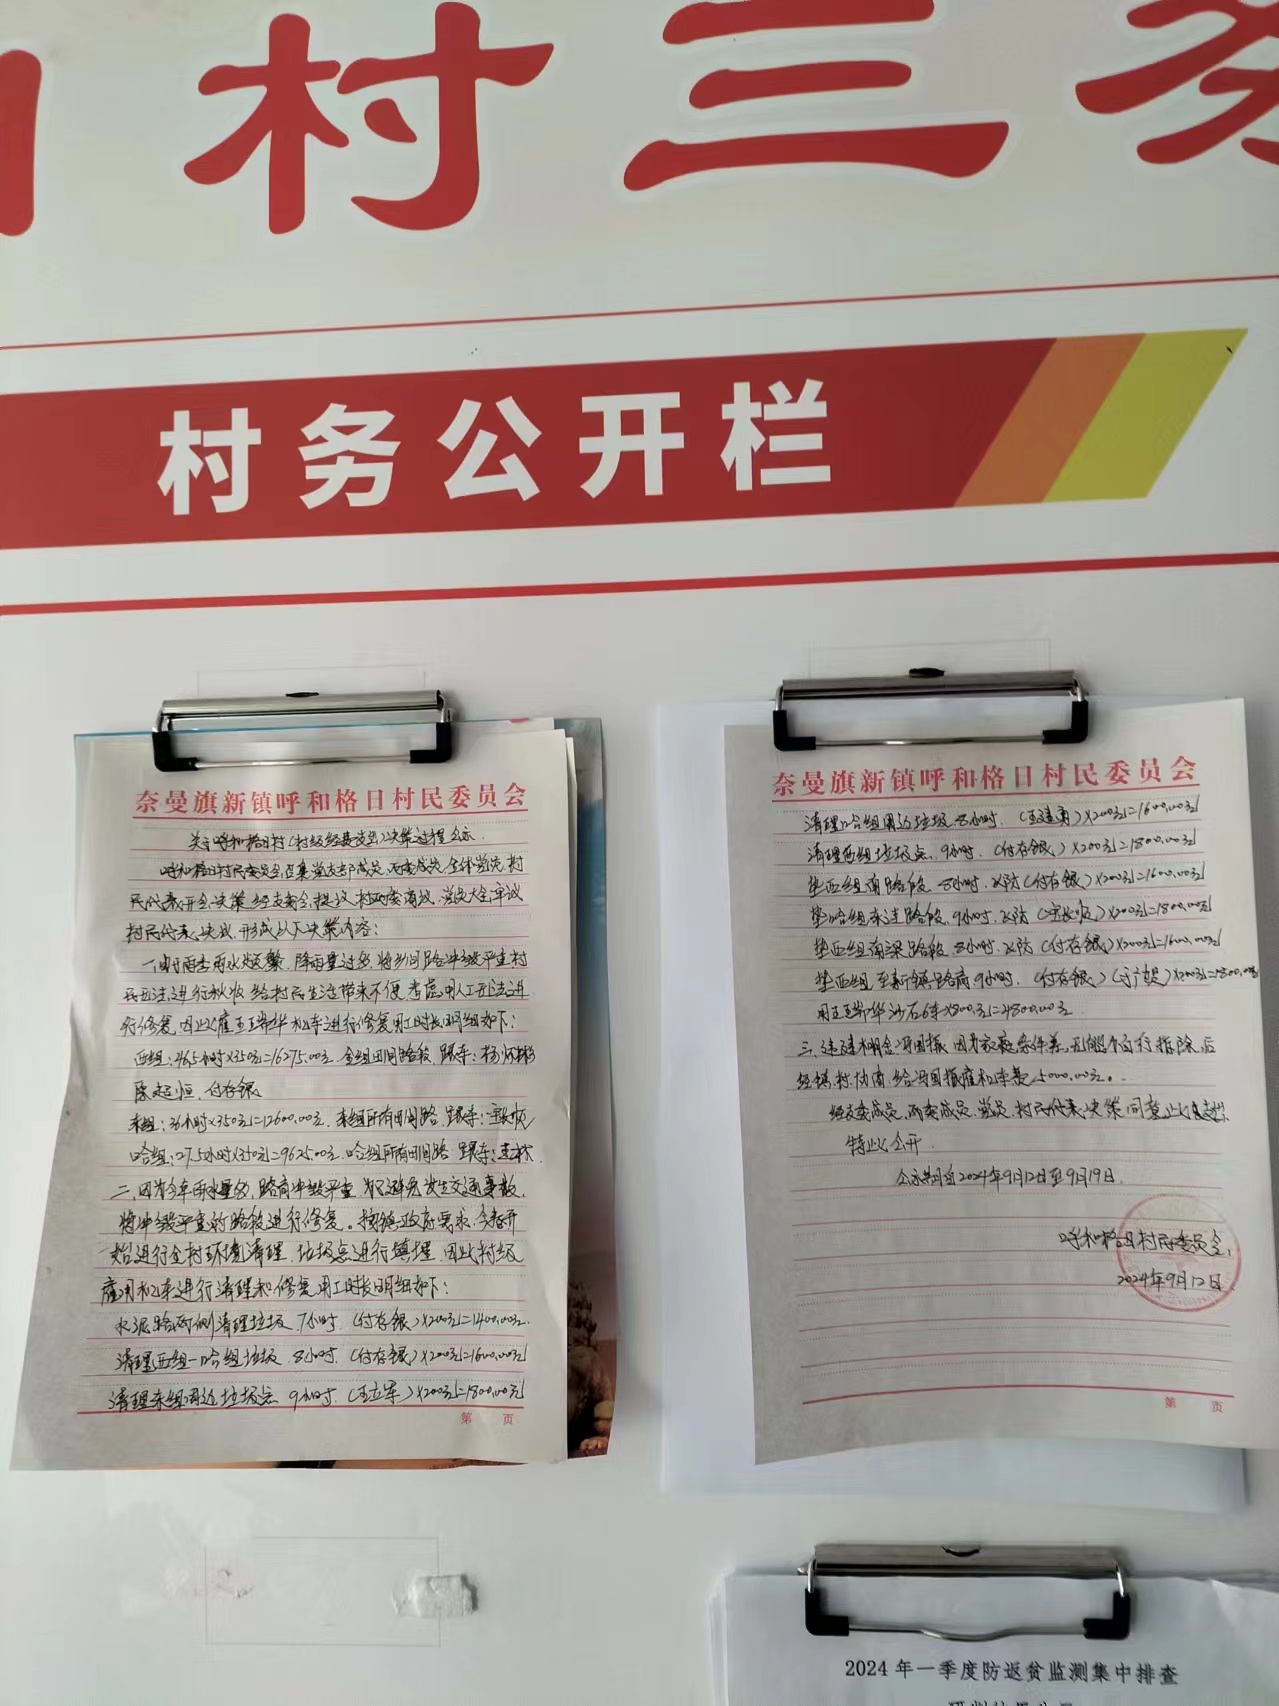 日村三务
村务公开栏
奈曼旗新镇呼和格日村民委员会
关于呼和格日村(村级经费支出)决策过程公示
呼和格日村民委员会召集党支部成员、两委成员、全体党员、村
民代表开会决策经支委会提议、村两委商议、党员大会审议
村民代表决议,形成以下决策内容:
一、由于雨季雨水频繁,降雨量过多,将乡间路冲毁严重村
民无法进行秋收给村民生活带来不便,考虑用人工无法进
行修复,因此雇王瑞华机车进行修复用工时长明细如下:
西组:46.5小时×350元=16275.00元 全组田间路段、跟车:杨怀彬
超恒、付存银
东组:36小时×350元=12600.00元、东组所有田间路、跟车:宝长顺
哈组:27.5小时×350元=9625.00元、哈组所有田间路 跟车:
二、因为今年雨水量多,路商冲毁严重,为了避免发生交通事故,
将冲毁严重的路段进行修复。按镇政府要求,今春开
始进行全村环境清理、垃圾点进行填埋,因此村级
雇用机车进行清理和修复用工时长明细如下:
水泥路两侧清理垃圾、7小时、(付存银)×200元=1400.00元
清理西组一哈组垃圾、8小时、(付存银)×200元=1600.00元
清理东组周边垃圾点 9小时、(王立军)×200元=1800.00元
第 页
奈曼旗新镇呼和格日村民委员会
清理哈组周边垃圾 8小时、(王建勇)×200元=1600.00元
清理西组垃圾点、9小时、(付存银)×200元=1800.00元
垫西组南路段 8小时、水防(付存银)×200元=1600.00元
垫哈组东边路段、9小时、水防(宝长顺)×200元=1800.00元
垫西组南梁路段、8小时、水防(付存银)×200元=1600.00元
垫西组至新镇路商9小时、(付存银)×200元=1800.00元
用王瑞华沙石6车×800元=4800.00元
三、违建棚舍冯国振因为家庭条件差,无能力自行拆除,后
经镇村协商给冯国振雇机车费5000.00元。
经支委成员、两委成员、党员、村民代表决策同意此项支出
特此公开
公示期自2024年9月12日至9月19日
呼和格日村民委员会
2024年9月12日
第 页
2024年一季度防返贫监测集中排查